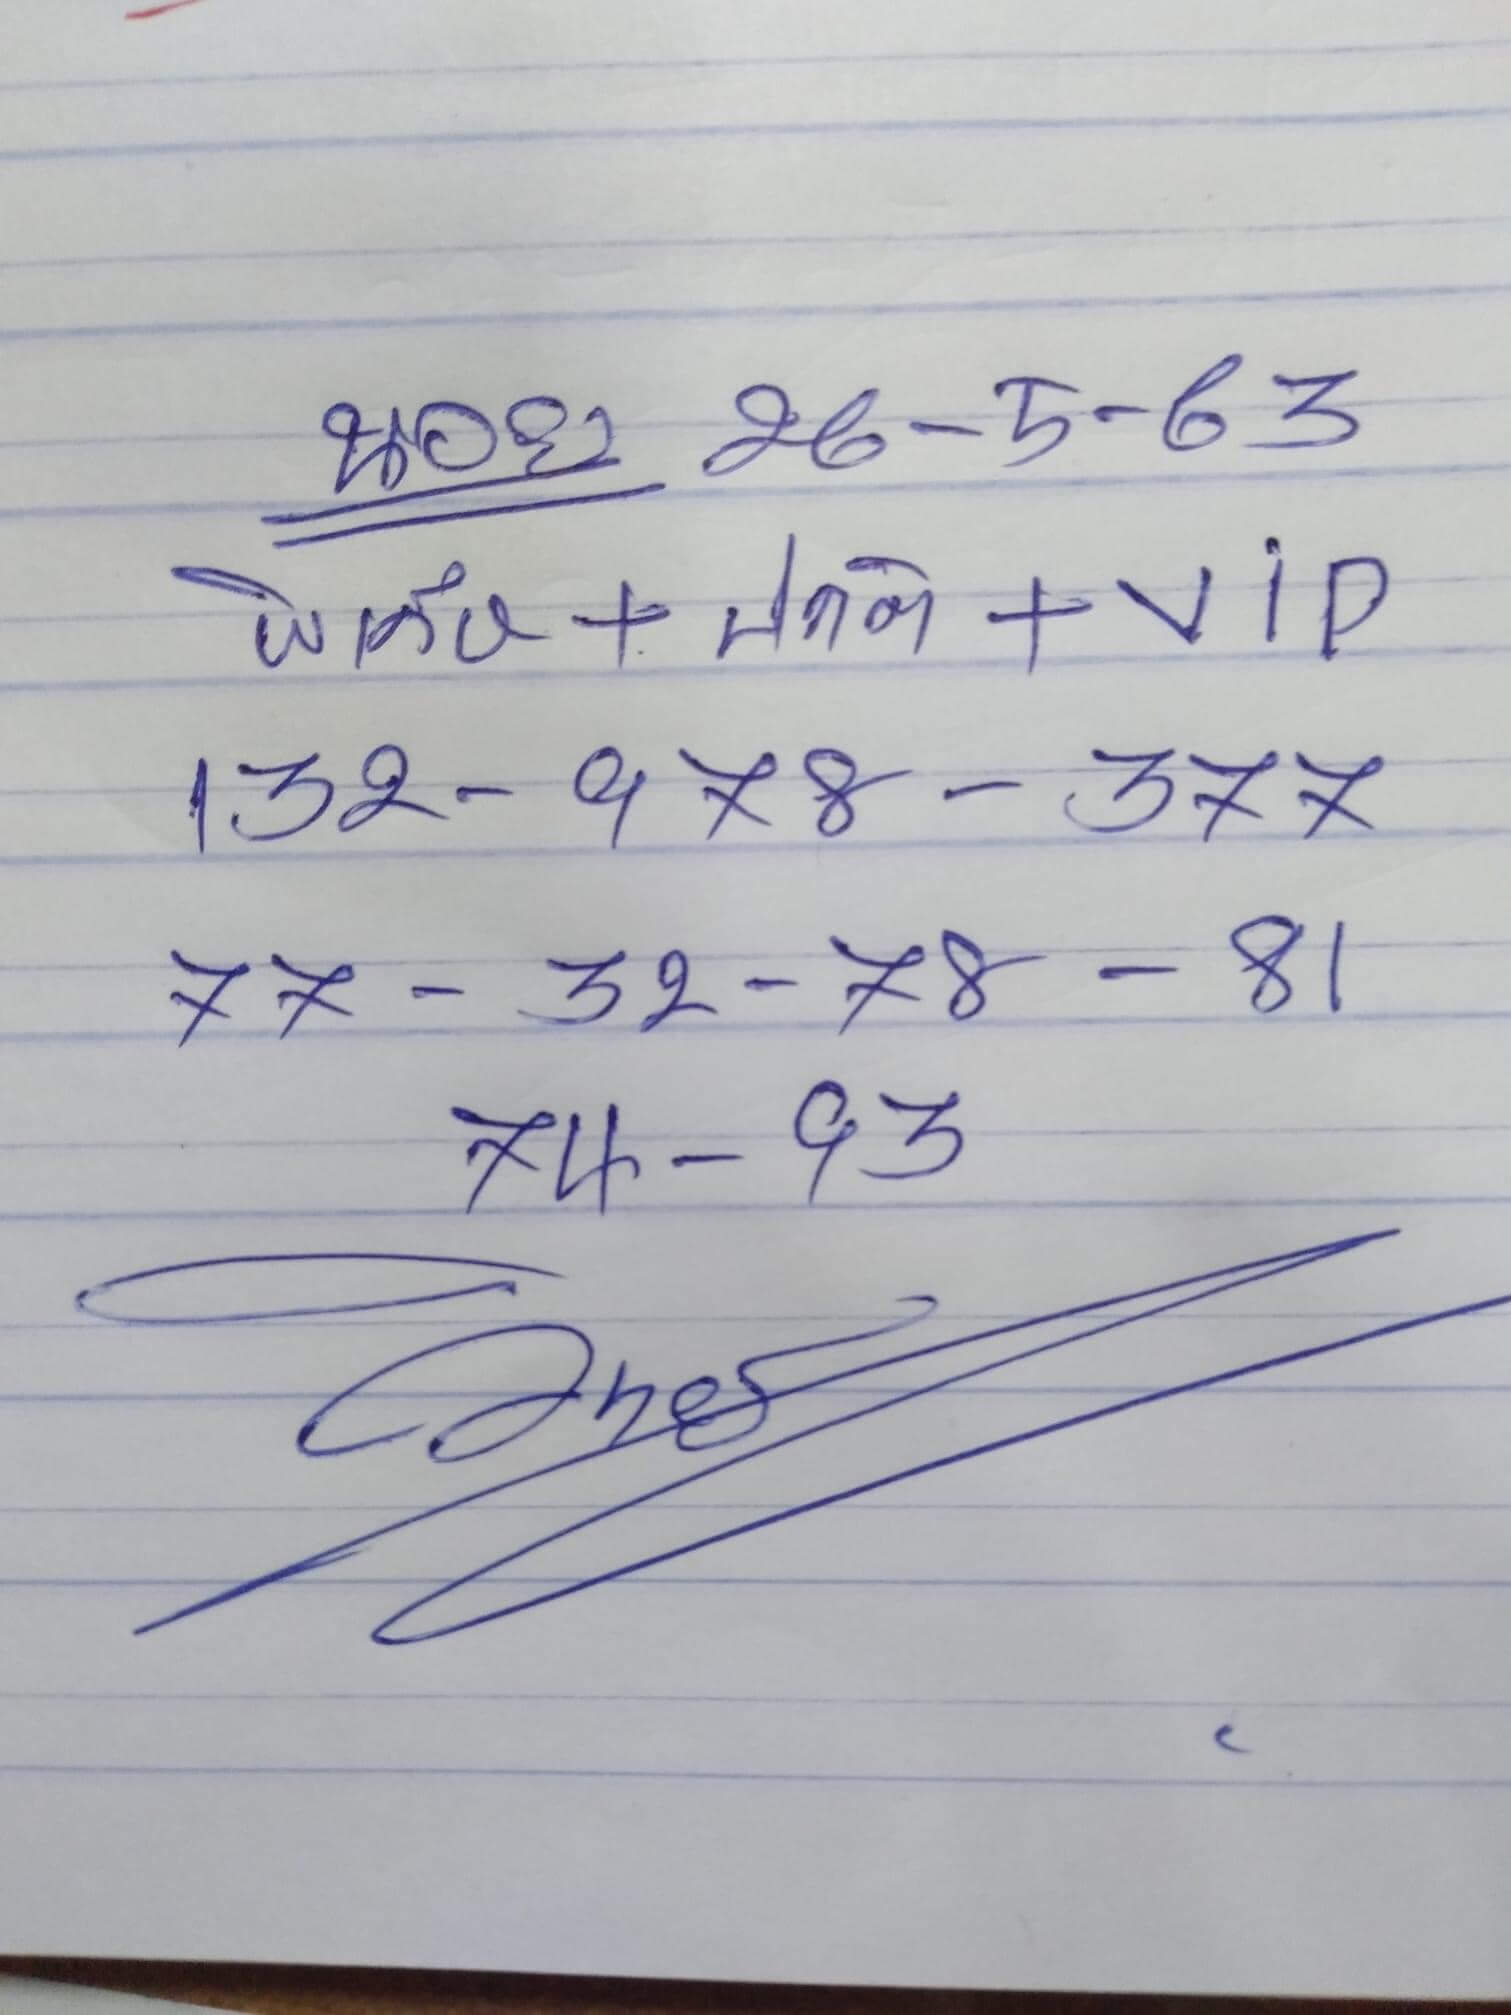 นอย 26-5-63
พิเศษ + ปกติ + ViP
132 - 978 - 377
77 - 32 - 78 - 81
74 - 93